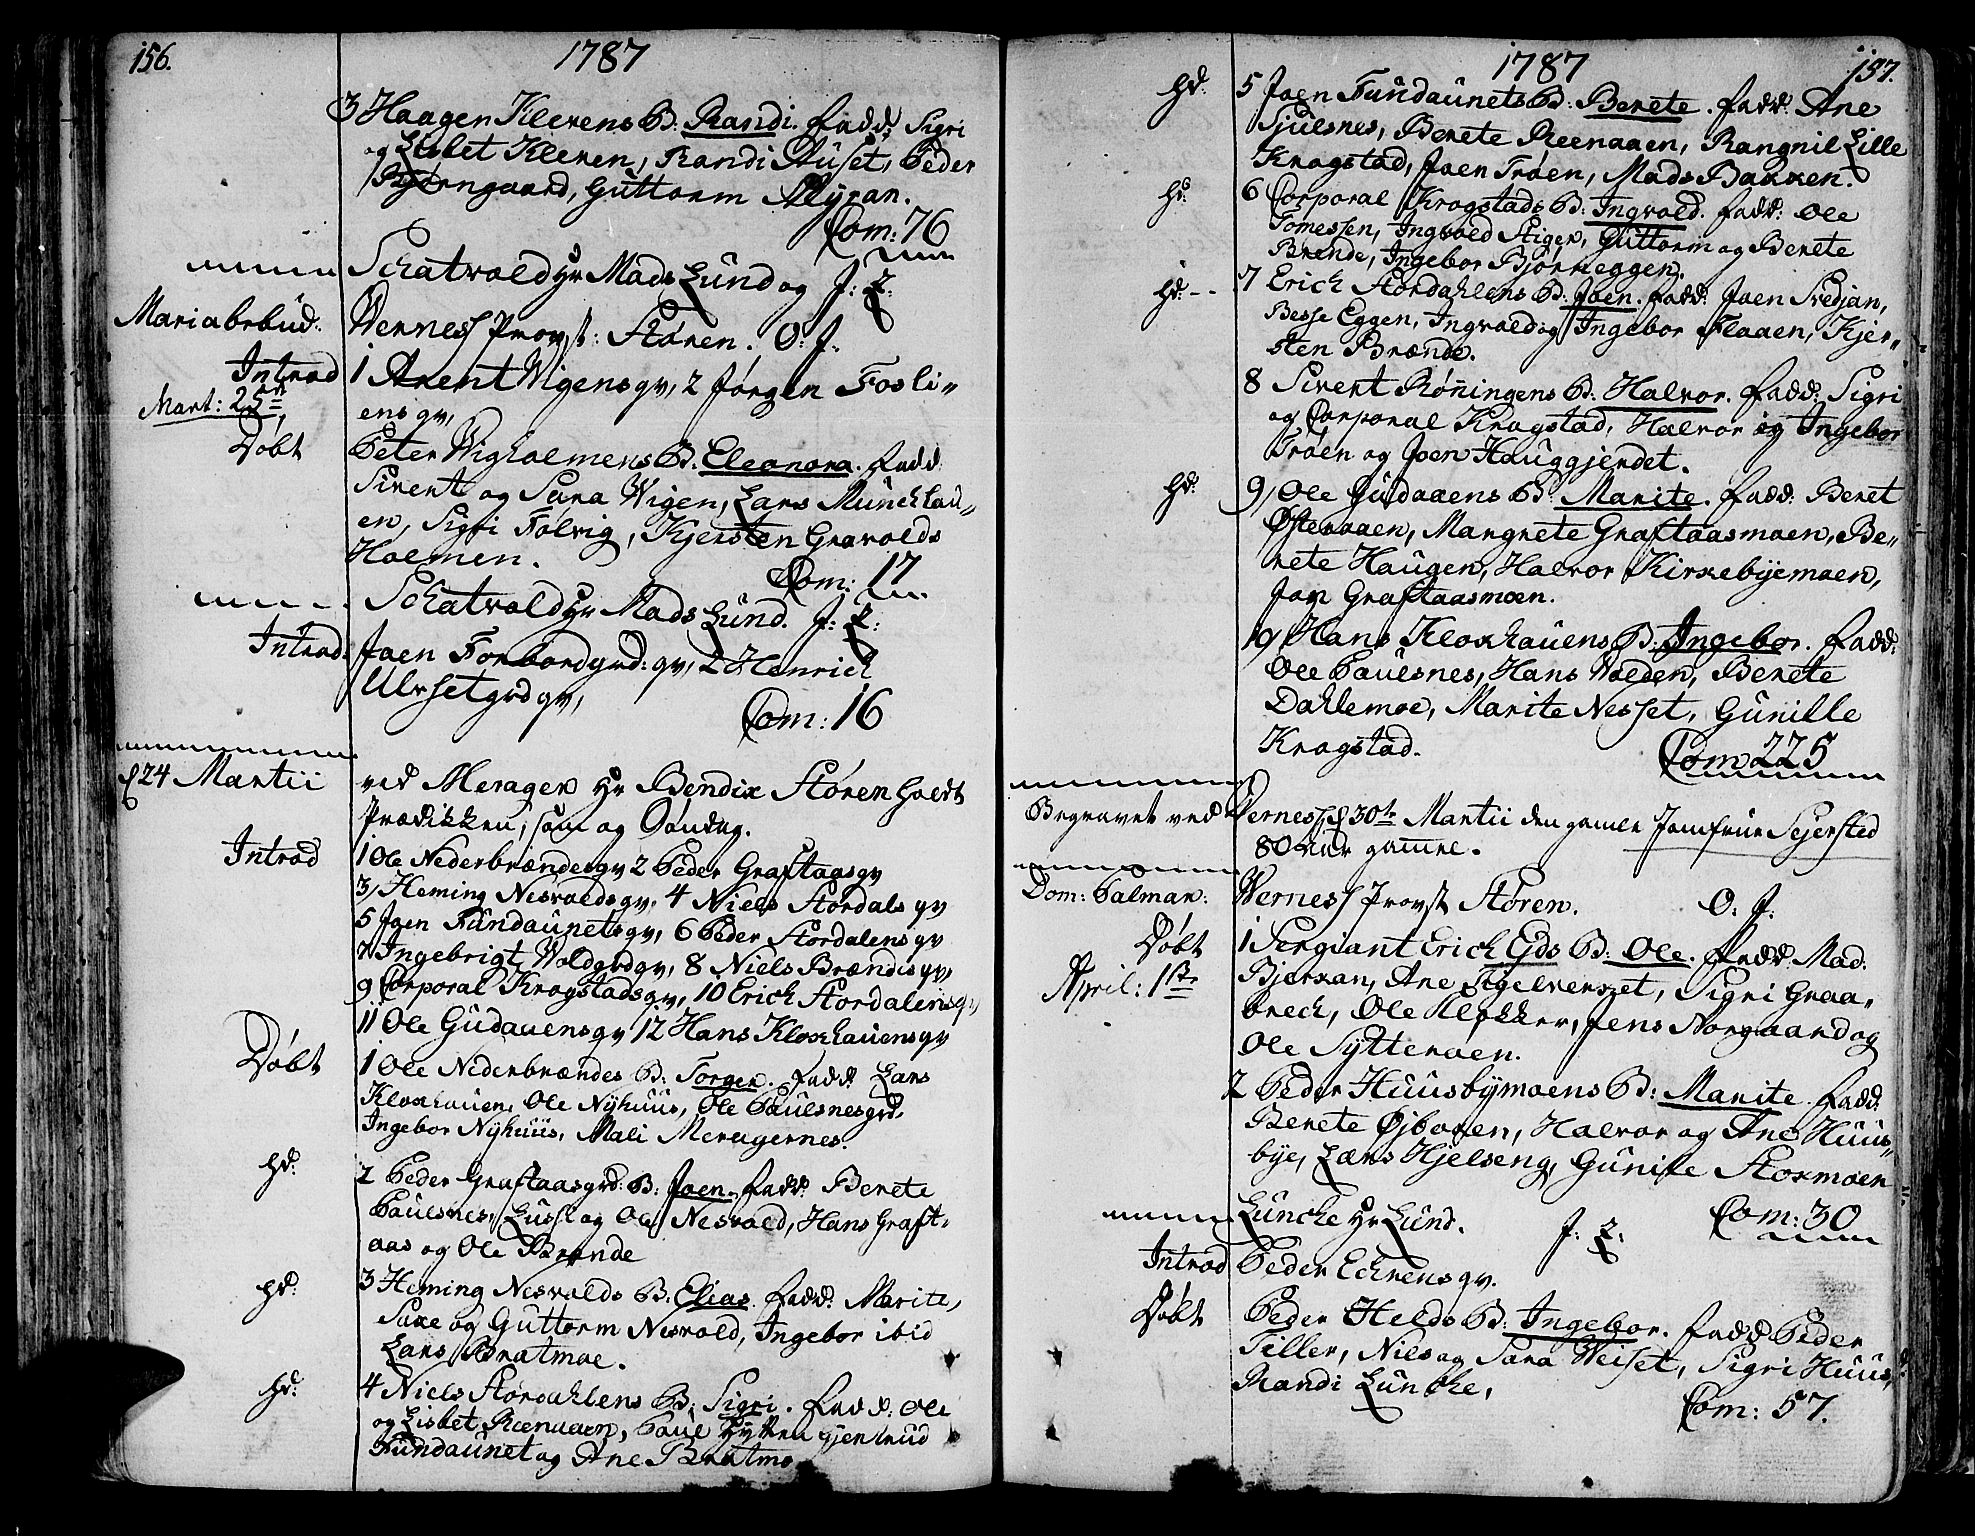 156.
1787
3 Haagen Klevens B. Randi. Fadd. Sigri
og Lisbet Kleven, Randi Auset, Peder
Guttorm Myran.
Com: 76
Schatvold Hr Mads Lund og J: Z:
Mariæbebud:
Werness Provst: Stören. O. J.
Introd
1 Arent Wigens qv, 2 Jørgen Fosli-
Mart: 25de
ens qv,
Döbt
Peter Wigholmens B. Eleonora. Fadd
Sivert og Sara Wigen, Lars Munchhau-
en, Sigri Folvig, Kjersten Gravolds
Holmen.
Com: 17
Schatvold Hr Mads Lund. J: Z:
Introd.
Joen Forbordgrd: qv, 2 Henrich
Ulvsetgrd qv,
Com: 16
d 24 Martii
ved Merager Hr Bendix Stören holdt
Prædikken, som og Søndag.
Introd
1 Ole Nederbrændes qv 2 Peder Graftaas qv
3, Heming Nesvolds qv, 4 Niels Stordals qv
5 Joen Fundaunets qv, 6 Peder Stordalens qv
7 Ingebrigt Woldgrd qv, 8 Niels Brændes qv,
9 Corporal Kragstads qv, 10 Erich Stordalens qv,
11 Ole Gudaaens qv 12 Hans Kloxhauens qv
Döbt
1 Ole Nederbrændes B: Torger. Fadd Lars
Kloxhauen, Ole Nyhuus, Ole Paulsnesgrd.
Ingebor Nyhuus, Mali Meragernes.
Hd:
2 Peder Graftaasgrd: B: Joen. Fadd: Berete
Paulsnes, Lussi og Ole Nesvold, Hans Graft-
aas og Ole Brende
Hd:
3 Heming Nesvolds B: Elias. Fadd: Marite,
og Guttorm Nesvold, Ingebor ibid
Lars Bratmoe.
Hd:
4 Niels Stördahlens B: Sigri. Fadd: Ole
og Lisbet Reenaaen, Paul
Fundaunet og Ane Bratmo
1787
157.
Hd:
5 Joen Fundaunets B: Berete. Fadd: Ane
Sjulsnes, Berete Reenaaen, Rangnil Lille
Kragstad, Joen Trøen, Mads Bakken.
Hd:
6 Corporal Kragstads B: Ingvold. Fadd: Ole
Tomessen, Ingvold Stigen, Guttorm og Berete
Brende, Ingebor Bjørneggen.
Hd:
7 Erich Stordahlens B: Joen. Fadd: Joen Svedjan,
Besse Eggen, Ingvold og Ingebor Flaaen, Kjer-
sten Brænde.
8 Sivert Röningens B: Halvor. Fadd: Sigri
og Corporal Kragstad, Halvor og Ingebor
Trøen og Joen Hauggjerdet.
Hd:
9, Ole Gudaaens B: Marite. Fadd: Beret
Østeraaen, Margrete Graftaasmoen, Be-
rete Haugen, Halvor Kirkebyemoen,
Jon Graftaasmoen.
10, Hans Kloxhauens B: Ingebor. Fadd:
Ole Paulsnes, Hans Wolden, Berete
Dahlemoe, Marite Nesset, Gunille
Kragstad.
Com 225
Begravet ved
Verness d 30te Martii den gamle Jomfrue Sejersted
80 Aar gamle.
Dom: Palmar:
Werness Provst Stören. O: J.
Döbt
1 Sergiant Erich Eids B: Ole. Fadd: Mad.
April: 1ste
Bjerkan, Ane Tigelverket, Sigri Graa-
breck, Ole Klokker, Jens Norgaard og
Ole Sytteroen.
2 Peder Huusbymoens B: Marite. Fadd:
Berete Øjbaren, Halvor og Ane Huus-
bye, Lars Hjelseng, Gunile Stormoen
Com: 30
Luncke Hr Lund. J: Z:
Introd
Peder Echrens qv.
Döbt
Peder Helds B: Ingebor. Fadd Peder
Tiller, Niels og Sara Weiset, Sigri Huus,
Randi Luncke,
Com: 57.